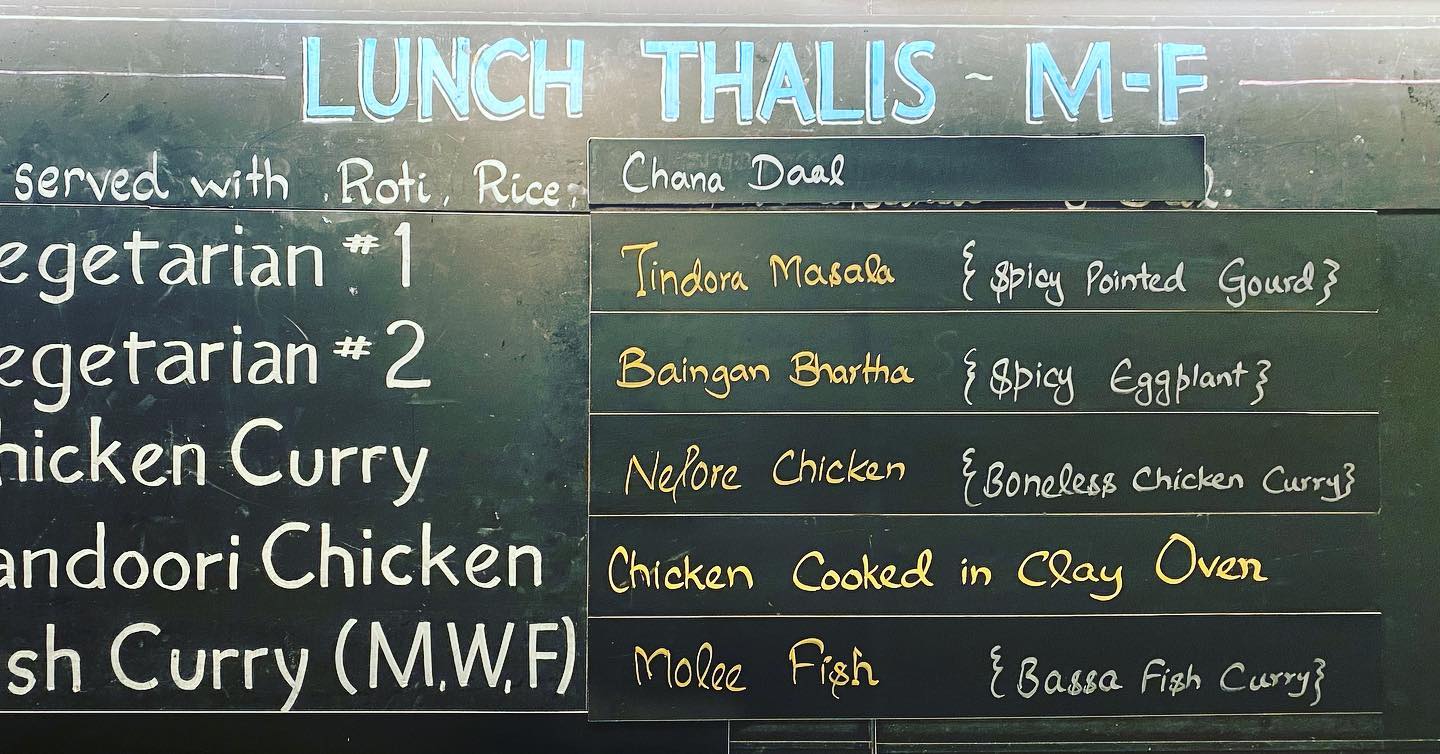 LUNCH THALIS ~ M-F
served with Roti, Rice, Chana Daal
egetarian #1 Tindora Masala {Spicy Pointed Gourd}
egetarian #2 Baingan Bhartha {Spicy Eggplant}
hicken Curry Nelore Chicken {Boneless Chicken Curry}
andoori Chicken Chicken Cooked in Clay Oven
sh Curry (M.W.F) Molee Fish {Bassa Fish Curry}